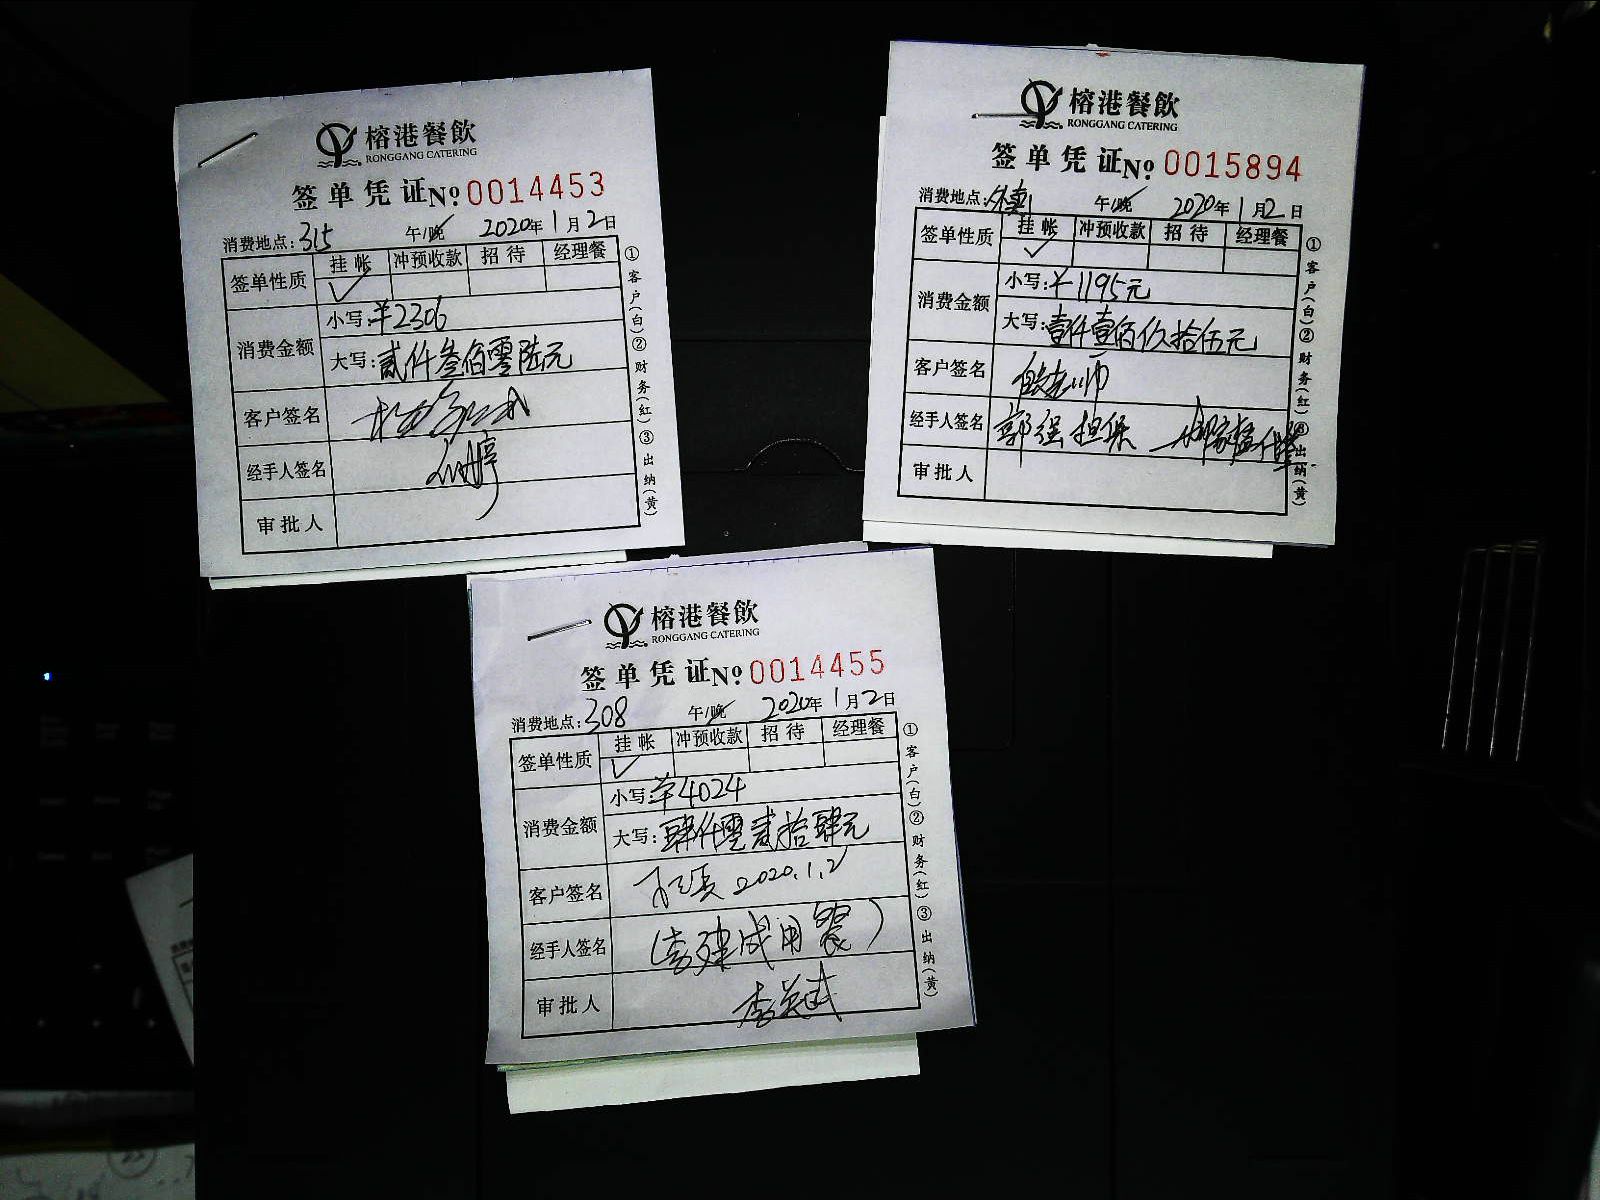 榕港餐飲
RONGGANG CATERING
签单凭证 No 0014453
消费地点:315 午/晚 2020年1月2日
签单性质 挂帐 冲预收款 招待 经理餐
✓
消费金额 小写:¥2306
大写:贰仟叁佰零陆元
客户签名
经手人签名
审批人
①客户(白)②财务(红)③出纳(黄)
榕港餐飲
RONGGANG CATERING
签单凭证 No 0015894
消费地点:外卖 午/晚 2020年1月2日
签单性质 挂帐 冲预收款 招待 经理餐
✓
消费金额 小写:¥1195元
大写:壹仟壹佰玖拾伍元
客户签名
经手人签名 郭强担保
审批人
①客户(白)②财务(红)③出纳(黄)
榕港餐飲
RONGGANG CATERING
签单凭证 No 0014455
消费地点:308 午/晚 2020年1月2日
签单性质 挂帐 冲预收款 招待 经理餐
✓
消费金额 小写:¥4024
大写:肆仟零贰拾肆元
客户签名 2020.1.2
经手人签名 (李建成用餐)
审批人
①客户(白)②财务(红)③出纳(黄)